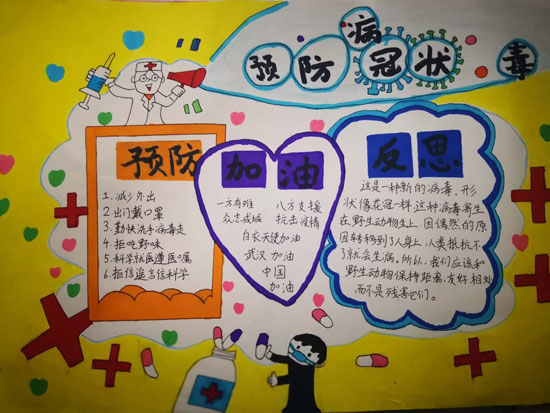 预防病冠状毒
预防
1.减少外出
2.出门戴口罩
3.勤快洗手病毒走
4.拒吃野味
5.科学就医遵医嘱
6.拒信谣言信科学
加油
一方有难 八方支援
众志成城 抗击疫情
白衣天使加油
武汉 加油
中国
加油
反思
这是一种新的病毒,形
状像花冠一样.这种病毒寄生
在野生动物生上,因偶然的原
因转移到了人身上,人类抵抗不
了就会生病。所以,我们应该和
野生动物保持距离,友好相处
而不是残害它们。